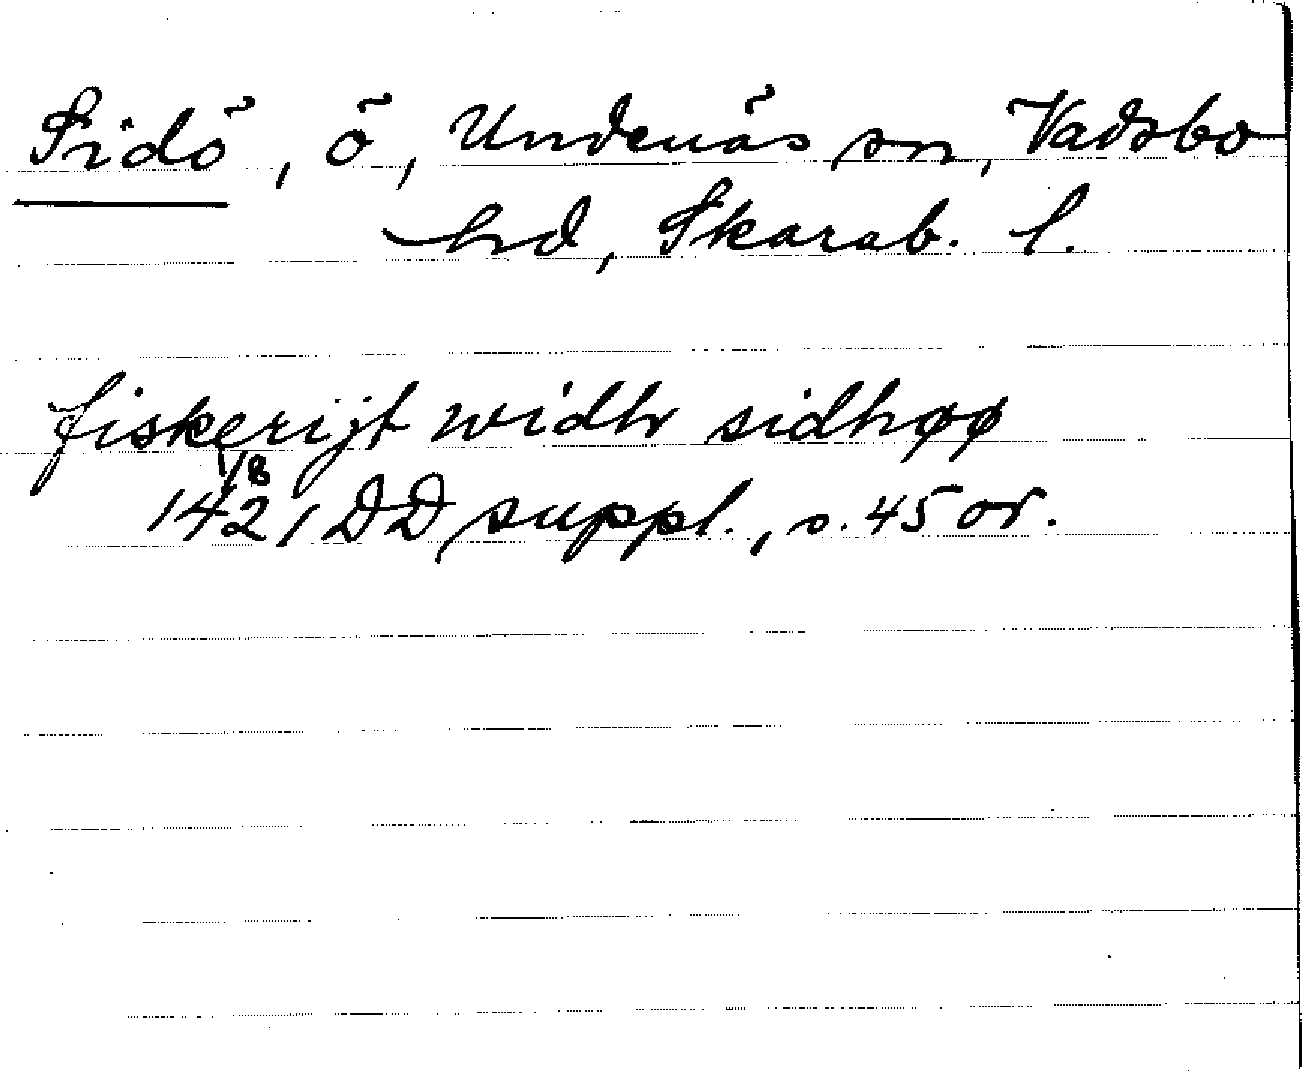 Sidö, ö, Undenäs sn, Vadsbo
hd, Skarab. l.
fiskerijt widh sidhøø
1/8
1421 DD suppl., s. 45 or.